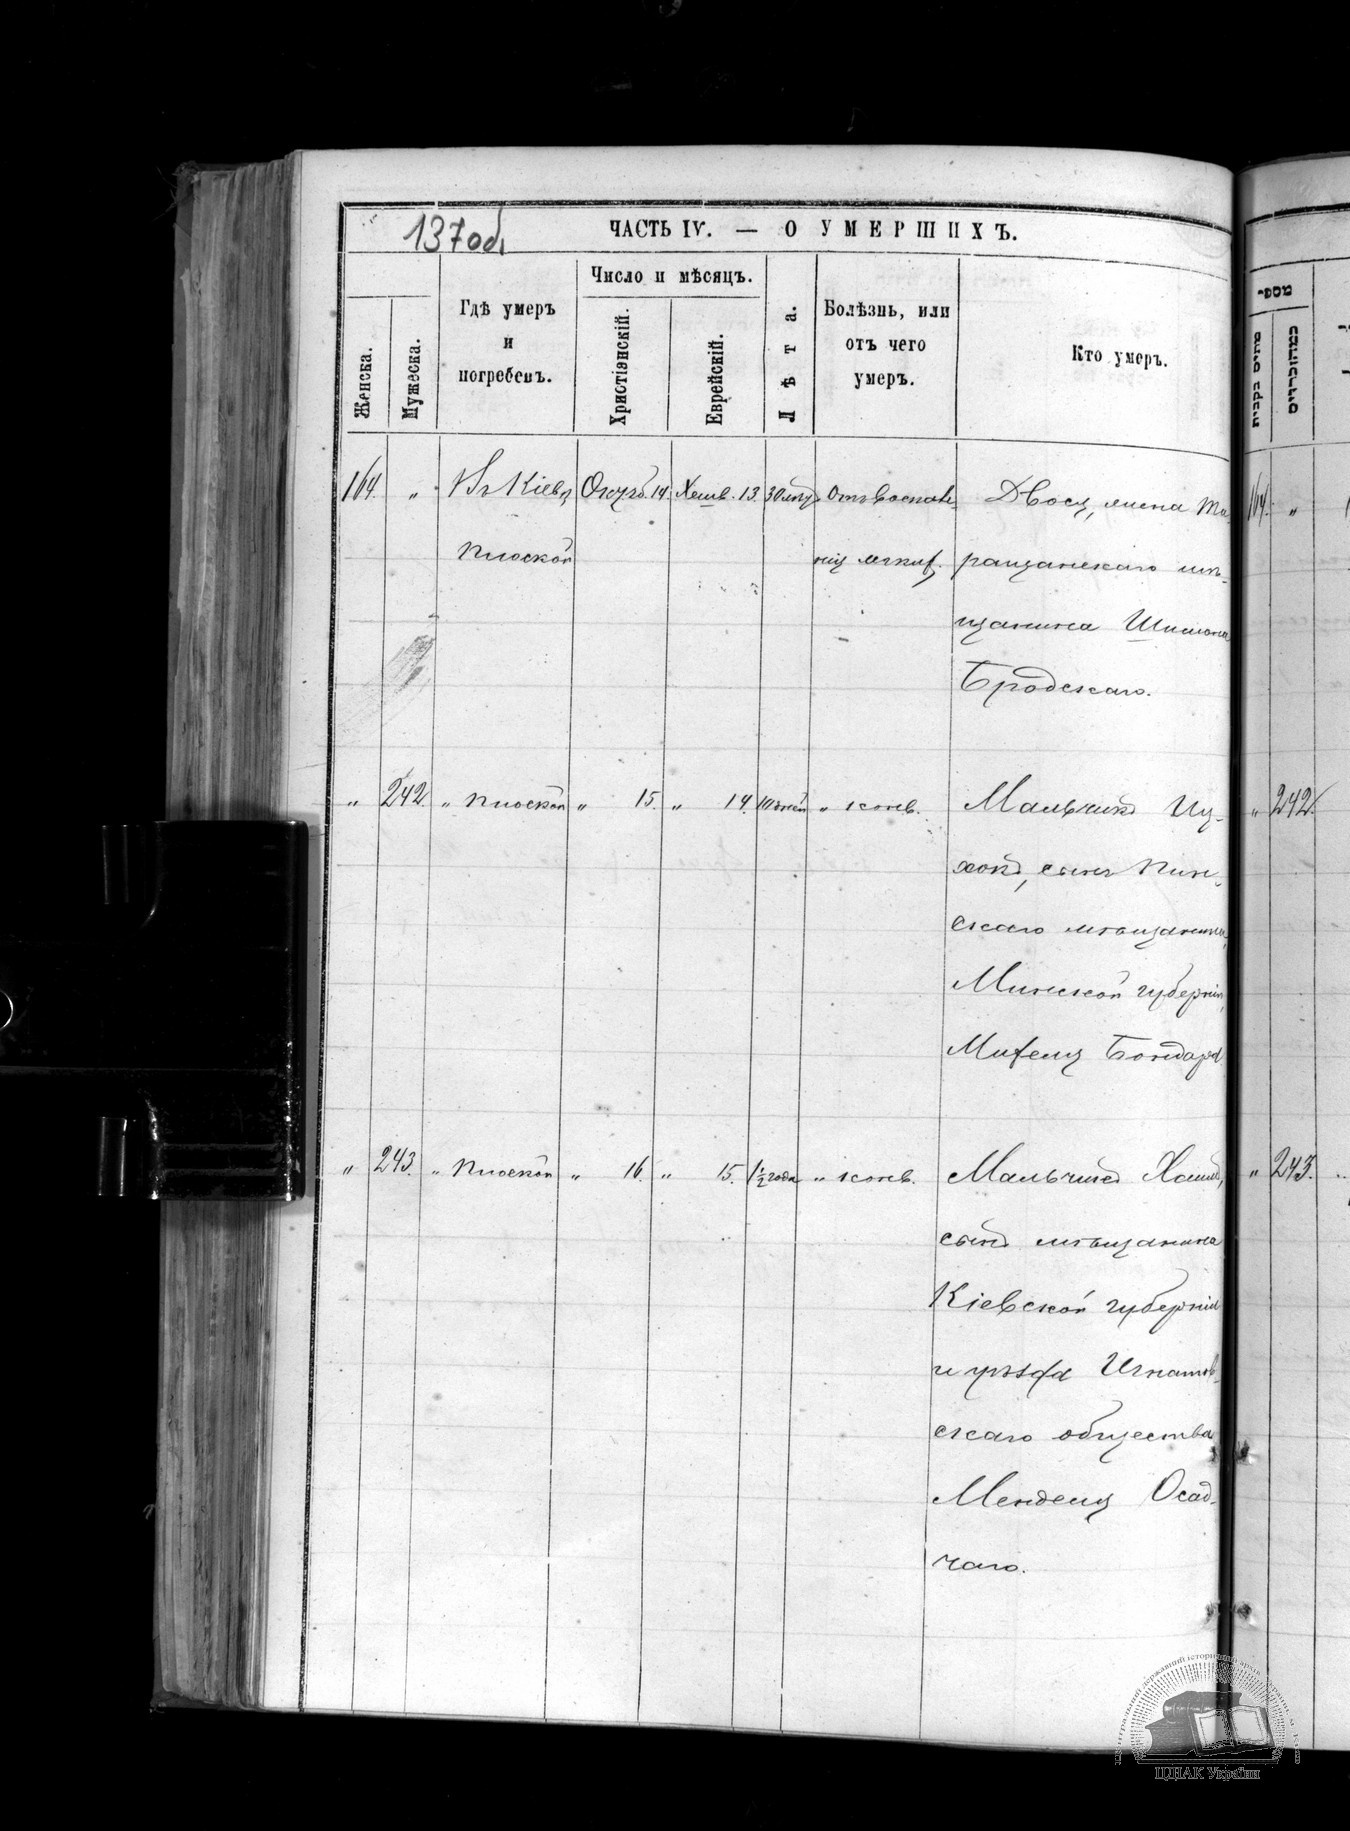 137 об.
ЧАСТЬ IV. — О УМЕРШИХЪ.
Женска.
Мужеска.
Гдѣ умеръ
и
погребенъ.
Число и мѣсяцъ.
Христіэнскій.
Еврейскій.
Лѣта.
Болѣзнь, или
отъ чего
умеръ.
Кто умеръ.
164. „ Въ Кіевѣ, Октяб. 14. Хешв. 13. 30 лѣтъ Отъ воспале- Двося, жена Та-
Плоской нія легких. ращанскаго мѣ-
щанина Шимона
Бродскаго.
„ 242. „ Плоской „ 15. „ 14. „ конв. Мальчикъ Иц-
хокъ, сынъ Пин-
скаго мѣщанина,
Минской губерніи,
Бондаря.
„ 243. „ Плоской „ 16. „ 15. 1½ года „ конв. Мальчикъ
сынъ мѣщанина
Кіевской губерніи
и уѣзда Игнатов-
скаго общества
Менделя Осад-
чаго.
מספר
164. „
„ 242.
„ 243.
ЦДІАК України